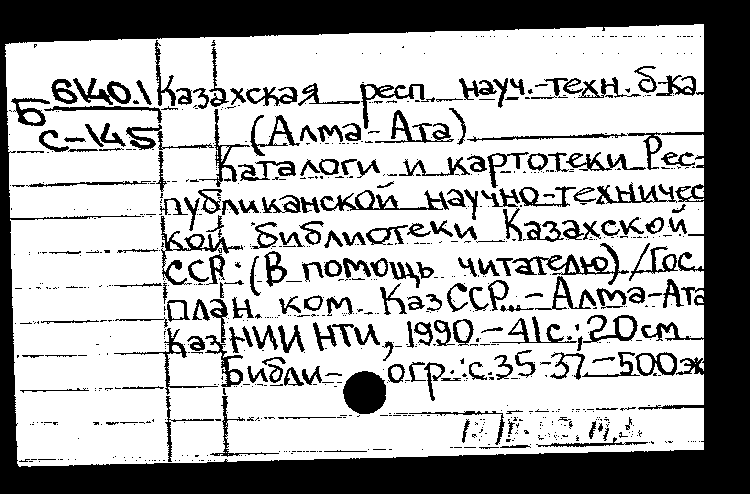 Б 6140.1
С-145
Казахская респ. науч.-техн. б-ка
(Алма-Ата)
Каталоги и картотеки Рес-
публиканской научно-техничес
кой библиотеки Казахской
ССР: (В помощь читателю) / Гос.
план. ком. КазССР... - Алма-Ата
КазНИИНТИ, 1990. - 41с.; 20см.
Библи- огр.: с.35-37 - 500эк